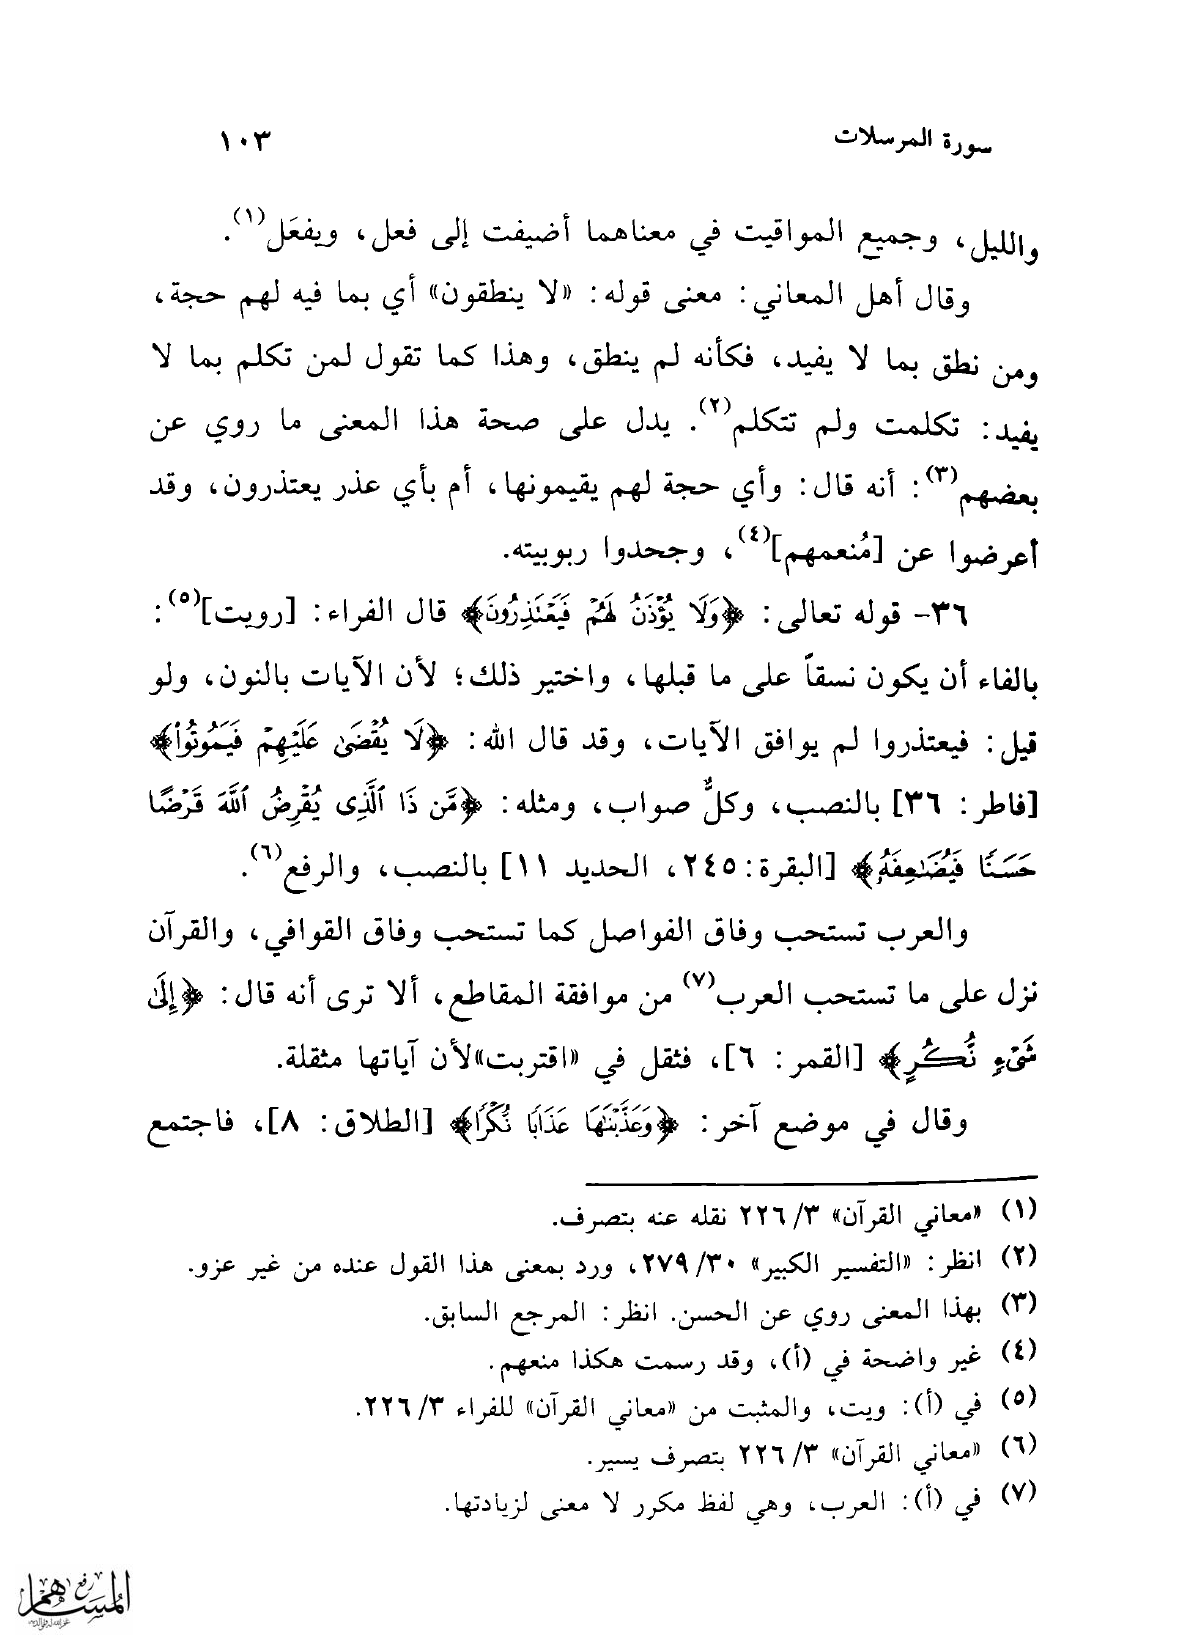 سورة المرسلات ١٠٣
والليل، وجميع المواقيت في معناهما أضيفت إلى فعل، ويفعَل(١).
وقال أهل المعاني: معنى قوله: «لا ينطقون» أي بما فيه لهم حجة،
ومن نطق بما لا يفيد، فكأنه لم ينطق، وهذا كما تقول لمن تكلم بما لا
يفيد: تكلمت ولم تتكلم(٢). يدل على صحة هذا المعنى ما روي عن
بعضهم(٣): أنه قال: وأي حجة لهم يقيمونها، أم بأي عذر يعتذرون، وقد
أعرضوا عن [مُنعمهم](٤)، وجحدوا ربوبيته.
٣٦- قوله تعالى: ﴿وَلَا يُؤْذَنُ لَهُمْ فَيَعْتَذِرُونَ﴾ قال الفراء: [رويت](٥):
بالفاء أن يكون نسقاً على ما قبلها، واختير ذلك؛ لأن الآيات بالنون، ولو
قيل: فيعتذروا لم يوافق الآيات، وقد قال الله: ﴿لَا يُقْضَىٰ عَلَيْهِمْ فَيَمُوتُوا۟﴾
[فاطر: ٣٦] بالنصب، وكلٌّ صواب، ومثله: ﴿مَّن ذَا ٱلَّذِى يُقْرِضُ ٱللَّهَ قَرْضًا
حَسَنًا فَيُضَـٰعِفَهُۥ﴾ [البقرة: ٢٤٥، الحديد ١١] بالنصب، والرفع(٦).
والعرب تستحب وفاق الفواصل كما تستحب وفاق القوافي، والقرآن
نزل على ما تستحب العرب(٧) من موافقة المقاطع، ألا ترى أنه قال: ﴿إِلَىٰ
شَىْءٍ نُّكُرٍ﴾ [القمر: ٦]، فثقل في «اقتربت»لأن آياتها مثقلة.
وقال في موضع آخر: ﴿وَعَذَّبْنَـٰهَا عَذَابًا نُّكْرًا﴾ [الطلاق: ٨]، فاجتمع
(١) «معاني القرآن» ٣/ ٢٢٦ نقله عنه بتصرف.
(٢) انظر: «التفسير الكبير» ٣٠/ ٢٧٩، ورد بمعنى هذا القول عنده من غير عزو.
(٣) بهذا المعنى روي عن الحسن. انظر: المرجع السابق.
(٤) غير واضحة في (أ)، وقد رسمت هكذا منعهم.
(٥) في (أ): ويت، والمثبت من «معاني القرآن» للفراء ٣/ ٢٢٦.
(٦) «معاني القرآن» ٣/ ٢٢٦ بتصرف يسير.
(٧) في (أ): العرب، وهي لفظ مكرر لا معنى لزيادتها.